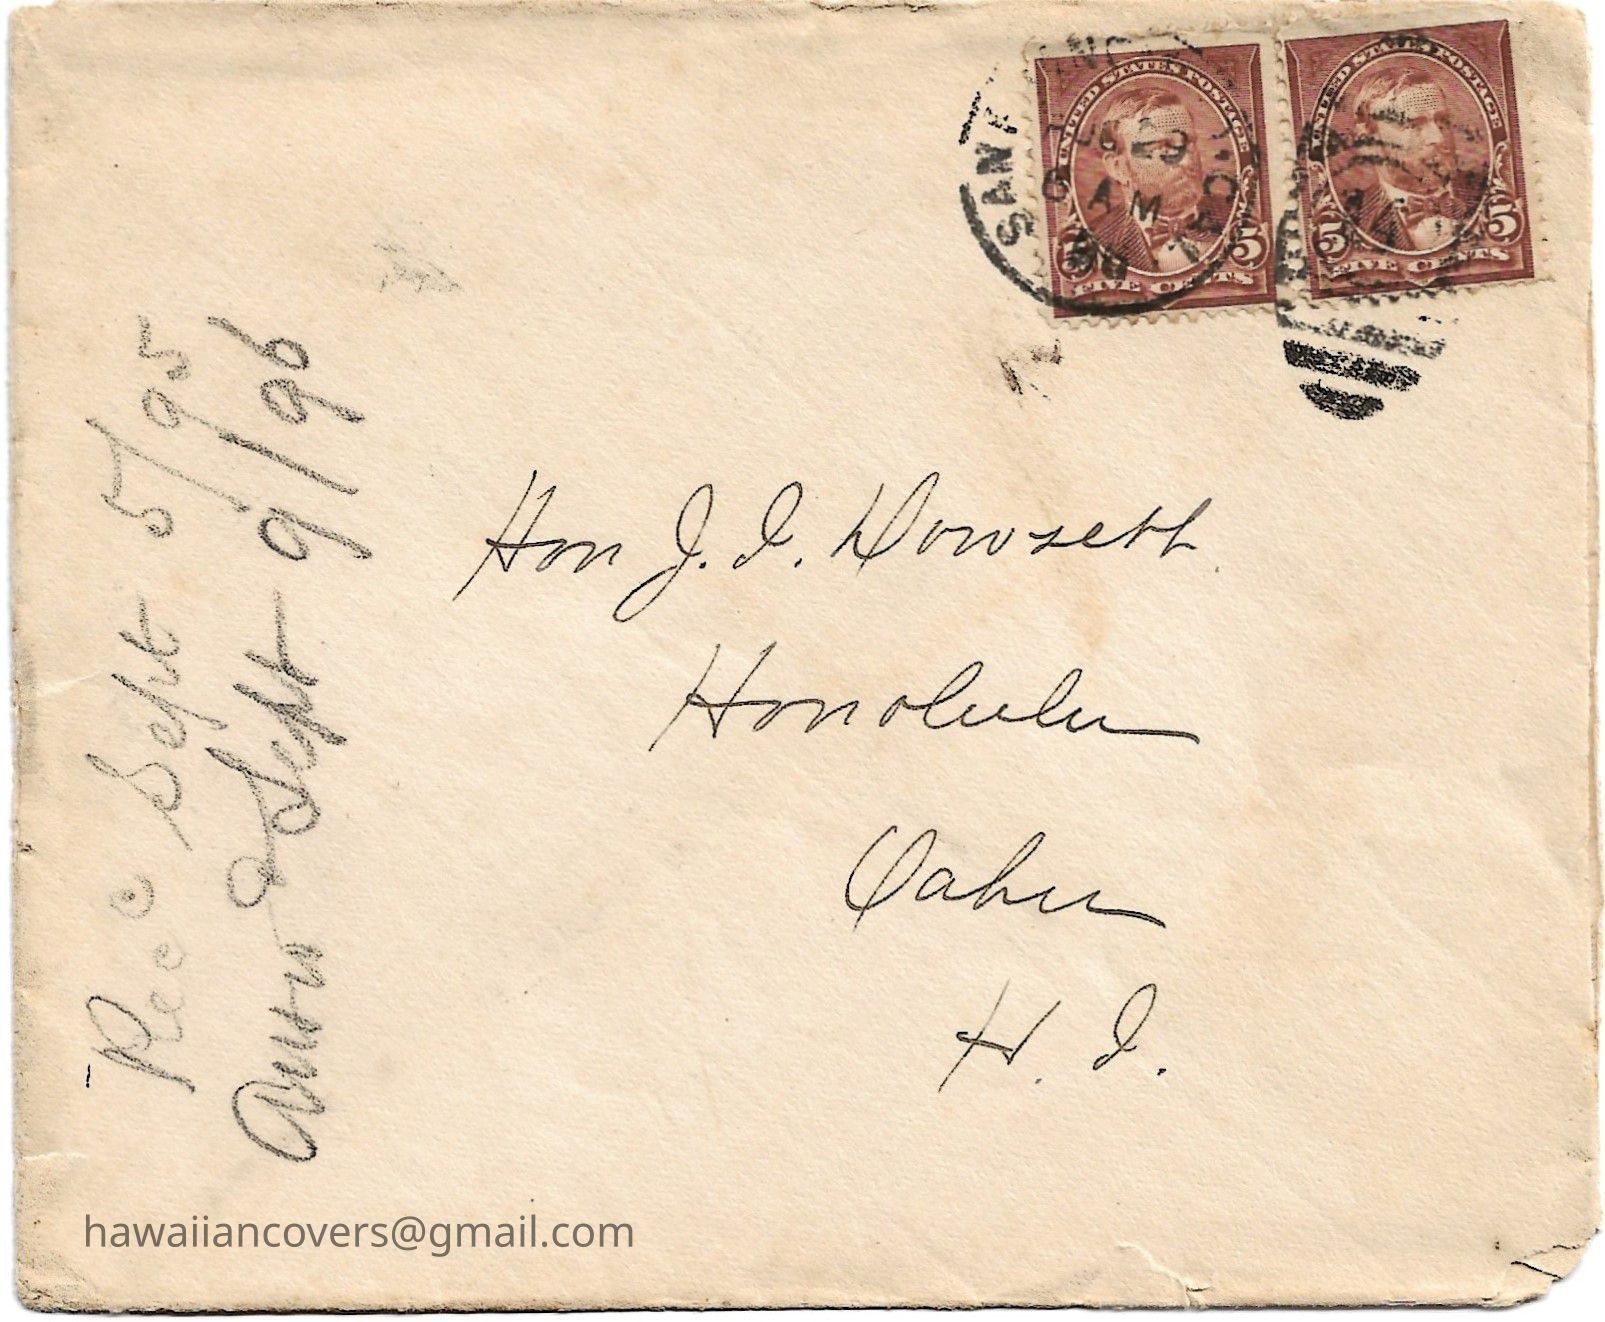 UNITED STATES POSTAGE
5 5
FIVE CENTS
UNITED STATES POSTAGE
5 5
FIVE CENTS
AM
Hon J. I. Dowsett
Honolulu
Oahu
H. I.
Rec Sept 5/95
Sept 9/96
hawaiiancovers@gmail.com